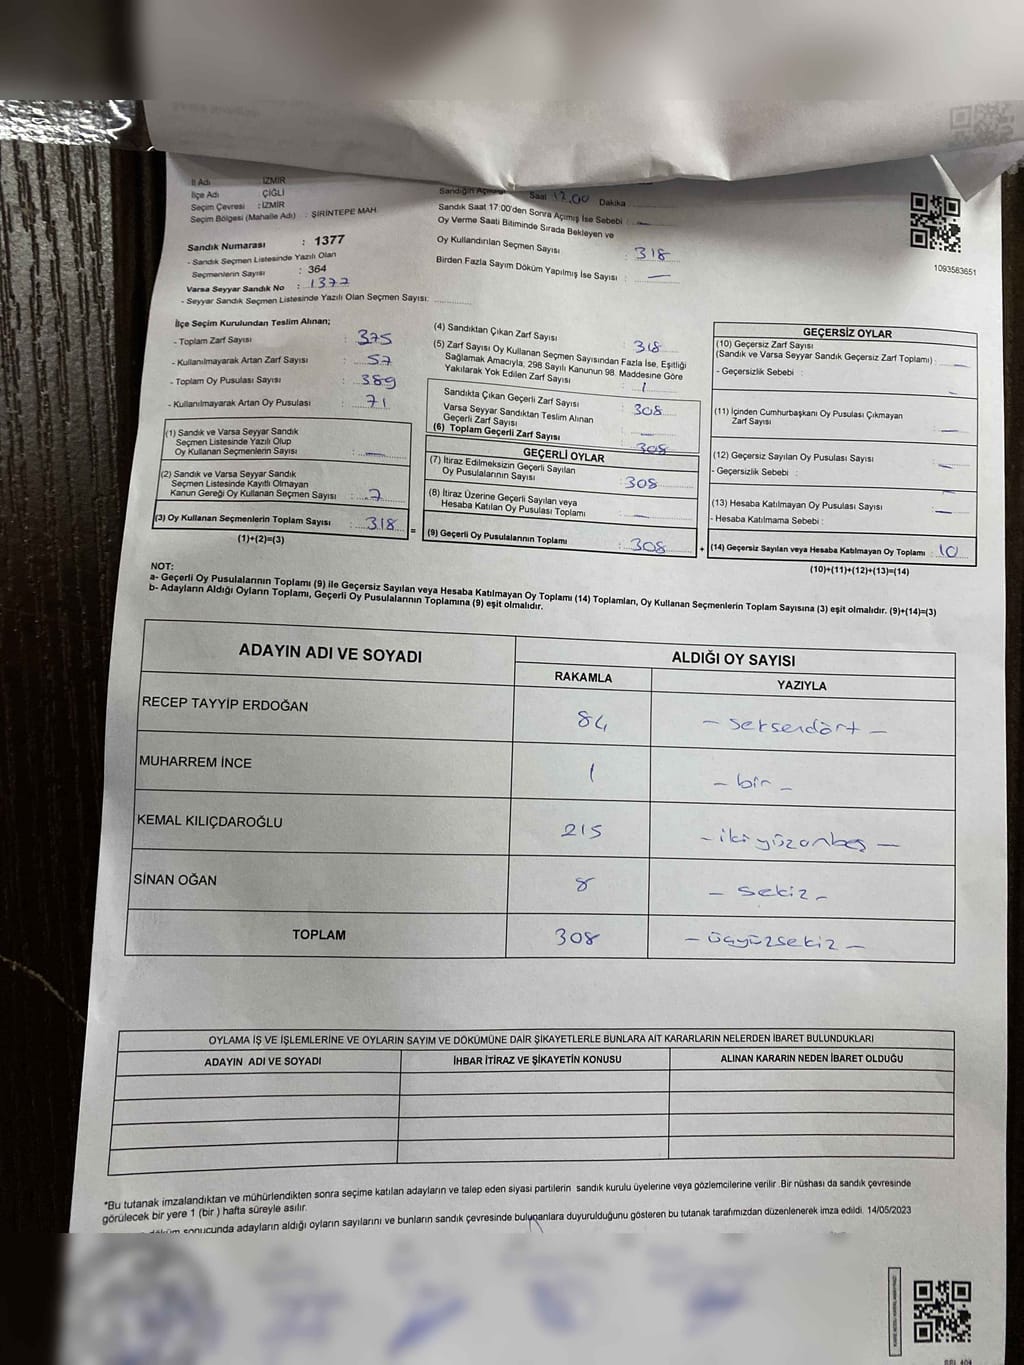 İl Adı : İZMİR
İlçe Adı : ÇİĞLİ
Seçim Çevresi : İZMİR
Seçim Bölgesi (Mahalle Adı) : ŞİRİNTEPE MAH.
Sandık Numarası : 1377
- Sandık Seçmen Listesinde Yazılı Olan
Seçmenlerin Sayısı : 364
Varsa Seyyar Sandık No : 1377
- Seyyar Sandık Seçmen Listesinde Yazılı Olan Seçmen Sayısı:
Sandığın Saat 17.00 Dakika
Sandık Saat 17:00'den Sonra Açmış İse Sebebi :
Oy Verme Saati Bitiminde Sırada Bekleyen ve
Oy Kullandırılan Seçmen Sayısı : 318
Birden Fazla Sayım Döküm Yapılmış İse Sayısı : —
1093583651
İlçe Seçim Kurulundan Teslim Alınan;
- Toplam Zarf Sayısı : 375
- Kullanılmayarak Artan Zarf Sayısı : 57
- Toplam Oy Pusulası Sayısı : 389
- Kullanılmayarak Artan Oy Pusulası : 71
(1) Sandık ve Varsa Seyyar Sandık
Seçmen Listesinde Yazılı Olup
Oy Kullanan Seçmenlerin Sayısı : —
(2) Sandık ve Varsa Seyyar Sandık
Seçmen Listesinde Kayıtlı Olmayan
Kanun Gereği Oy Kullanan Seçmen Sayısı : 7
(3) Oy Kullanan Seçmenlerin Toplam Sayısı : 318
(1)+(2)=(3)
=
(4) Sandıktan Çıkan Zarf Sayısı : 318
(5) Zarf Sayısı Oy Kullanan Seçmen Sayısından Fazla İse, Eşitliği
Sağlamak Amacıyla, 298 Sayılı Kanunun 98. Maddesine Göre
Yakılarak Yok Edilen Zarf Sayısı :
Sandıkta Çıkan Geçerli Zarf Sayısı : 308
Varsa Seyyar Sandıktan Teslim Alınan
Geçerli Zarf Sayısı : —
(6) Toplam Geçerli Zarf Sayısı : 308
GEÇERLİ OYLAR
(7) İtiraz Edilmeksizin Geçerli Sayılan
Oy Pusulalarının Sayısı : 308
(8) İtiraz Üzerine Geçerli Sayılan veya
Hesaba Katılan Oy Pusulası Toplamı : —
(9) Geçerli Oy Pusulalarının Toplamı : 308
+
GEÇERSİZ OYLAR
(10) Geçersiz Zarf Sayısı
(Sandık ve Varsa Seyyar Sandık Geçersiz Zarf Toplamı) : —
- Geçersizlik Sebebi : —
(11) İçinden Cumhurbaşkanı Oy Pusulası Çıkmayan
Zarf Sayısı : —
(12) Geçersiz Sayılan Oy Pusulası Sayısı : —
- Geçersizlik Sebebi : —
(13) Hesaba Katılmayan Oy Pusulası Sayısı : —
- Hesaba Katılmama Sebebi : —
(14) Geçersiz Sayılan veya Hesaba Katılmayan Oy Toplamı : 10
(10)+(11)+(12)+(13)=(14)
NOT:
a- Geçerli Oy Pusulalarının Toplamı (9) ile Geçersiz Sayılan veya Hesaba Katılmayan Oy Toplamı (14) Toplamları, Oy Kullanan Seçmenlerin Toplam Sayısına (3) eşit olmalıdır. (9)+(14)=(3)
b- Adayların Aldığı Oyların Toplamı, Geçerli Oy Pusulalarının Toplamına (9) eşit olmalıdır.
ADAYIN ADI VE SOYADI ALDIĞI OY SAYISI
RAKAMLA YAZIYLA
RECEP TAYYİP ERDOĞAN 84 - seksendört -
MUHARREM İNCE 1 - bir -
KEMAL KILIÇDAROĞLU 215 - ikiyüzonbeş -
SİNAN OĞAN 8 - sekiz -
TOPLAM 308 - üçyüzsekiz -
OYLAMA İŞ VE İŞLEMLERİNE VE OYLARIN SAYIM VE DÖKÜMÜNE DAİR ŞİKAYETLERLE BUNLARA AİT KARARLARIN NELERDEN İBARET BULUNDUKLARI
ADAYIN ADI VE SOYADI İHBAR İTİRAZ VE ŞİKAYETİN KONUSU ALINAN KARARIN NEDEN İBARET OLDUĞU
*Bu tutanak imzalandıktan ve mühürlendikten sonra seçime katılan adayların ve talep eden siyasi partilerin sandık kurulu üyelerine veya gözlemcilerine verilir. Bir nüshası da sandık çevresinde
görülecek bir yere 1 (bir ) hafta süreyle asılır.
döküm sonucunda adayların aldığı oyların sayılarını ve bunların sandık çevresinde bulunanlara duyurulduğunu gösteren bu tutanak tarafımızdan düzenlenerek imza edildi. 14/05/2023